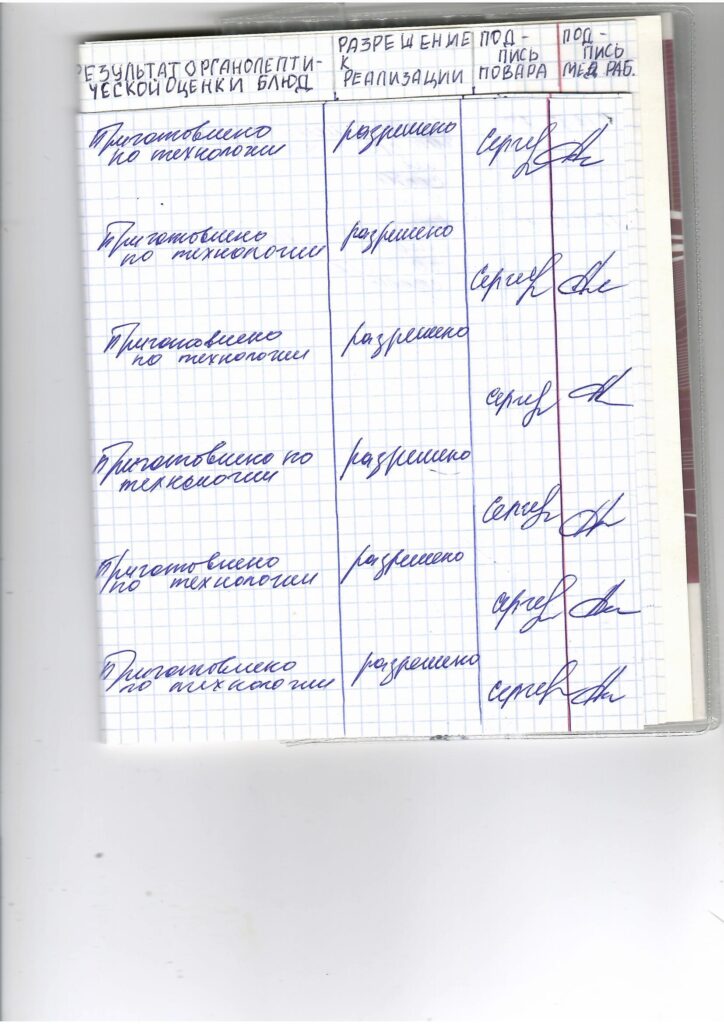 РЕЗУЛЬТАТ ОРГАНОЛЕПТИ-
ЧЕСКОЙ ОЦЕНКИ БЛЮД
РАЗРЕШЕНИЕ
К
РЕАЛИЗАЦИИ
ПОД-
ПИСЬ
ПОВАРА
ПОД-
ПИСЬ
МЕД. РАБ.
Приготовлено
по технологии
разрешено
Приготовлено
по технологии
разрешено
Приготовлено
по технологии
разрешено
Приготовлено по
технологии
разрешено
Приготовлено
по технологии
разрешено
Приготовлено
по технологии
разрешено